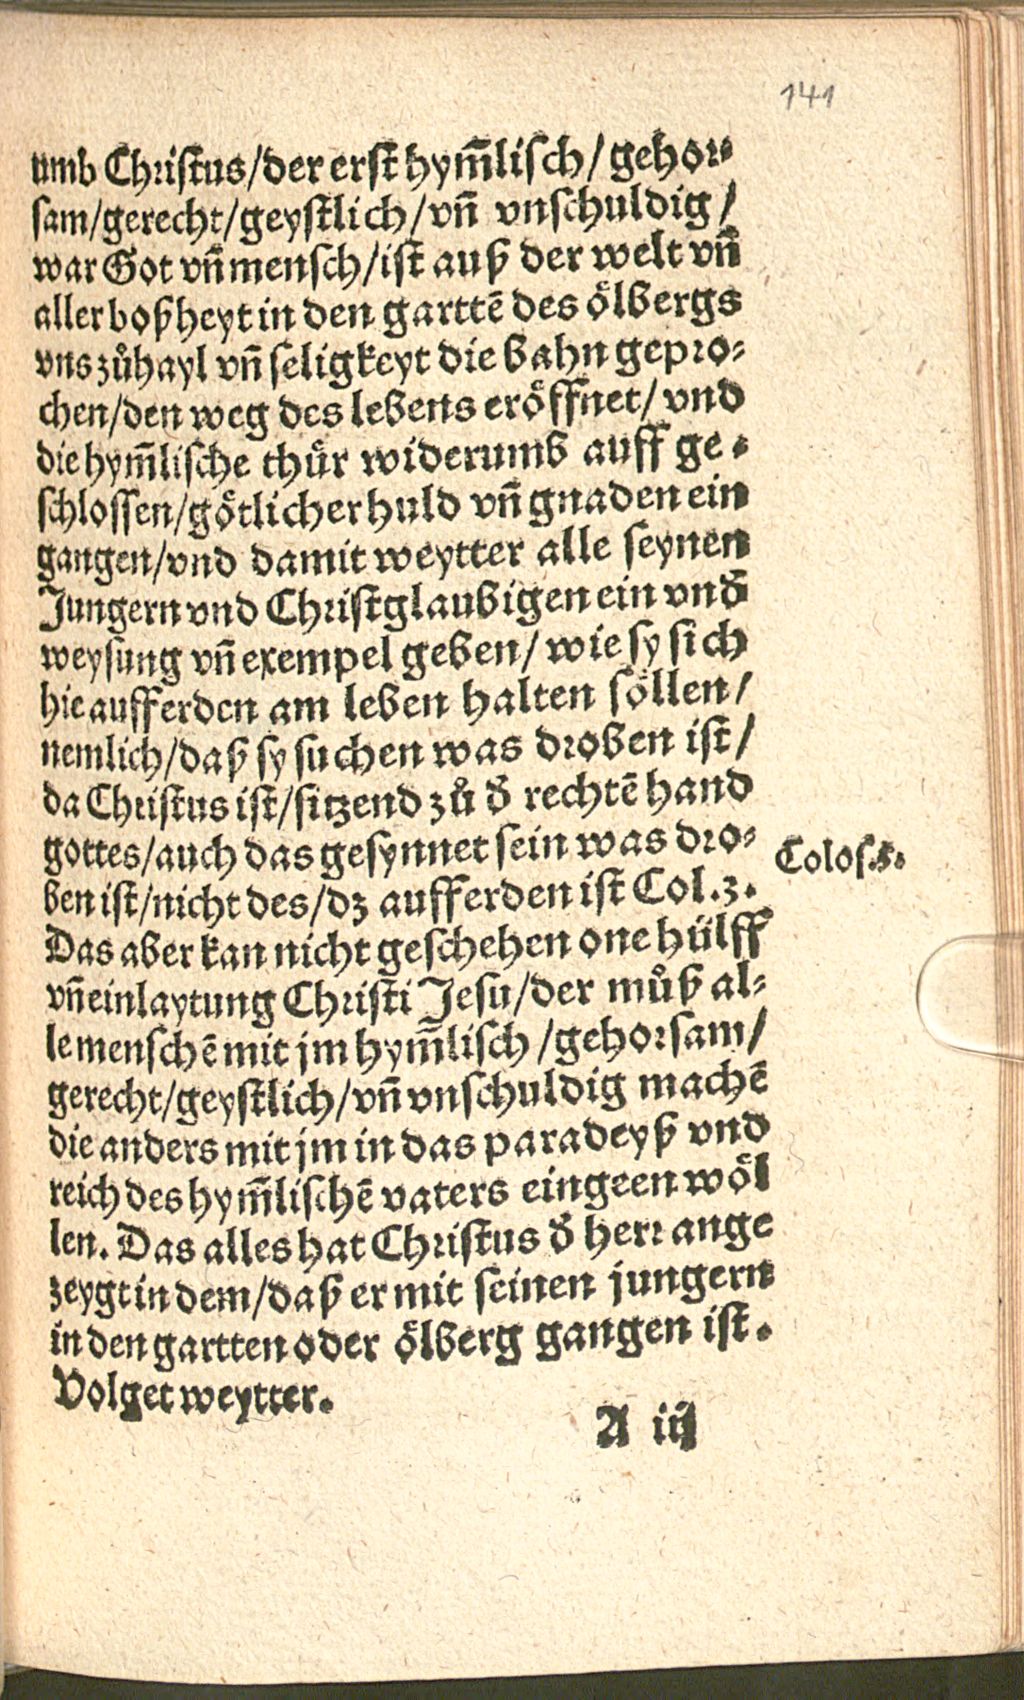 141
umb Christus/der erst hym̃lisch/gehor⸗
sam/gerecht/geystlich/vñ vnschuldig/
war Got vñ mensch/ist auß der welt vñ
aller boßheyt in den garttẽ des ölbergs
vns zůhayl vñ seligkeyt die bahn gepro⸗
chen/den weg des lebens eröffnet/vnd
die hym̃lische thür widerumb auff ge⸗
schlossen/götlicher huld vñ gnaden ein
gangen/vnd damit weytter alle seynen
Jungern vnd Christglaubigen ein vnd̃
weysung vñ exempel geben/wie sy sich
hie aufferden am leben halten söllen/
nemlich/daß sy suchen was droben ist/
da Christus ist/sitzend zů d̃ rechtẽ hand
gottes/auch das gesynnet sein was dro⸗
ben ist/nicht des/dz aufferden ist Col.3.
Colos.
Das aber kan nicht geschehen one hülff
vñ einlaytung Christi Jesu/der můß al⸗
le menschẽ mit jm hym̃lisch/gehorsam/
gerecht/geystlich/vñ vnschuldig machẽ
die anders mit jm in das paradeyß vnd
reich des hym̃lischẽ vaters eingeen wöl
len. Das alles hat Christus d̃ herr ange
zeygt in dem/daß er mit seinen jungern
in den gartten oder ölberg gangen ist.
Volget weytter.
A iij